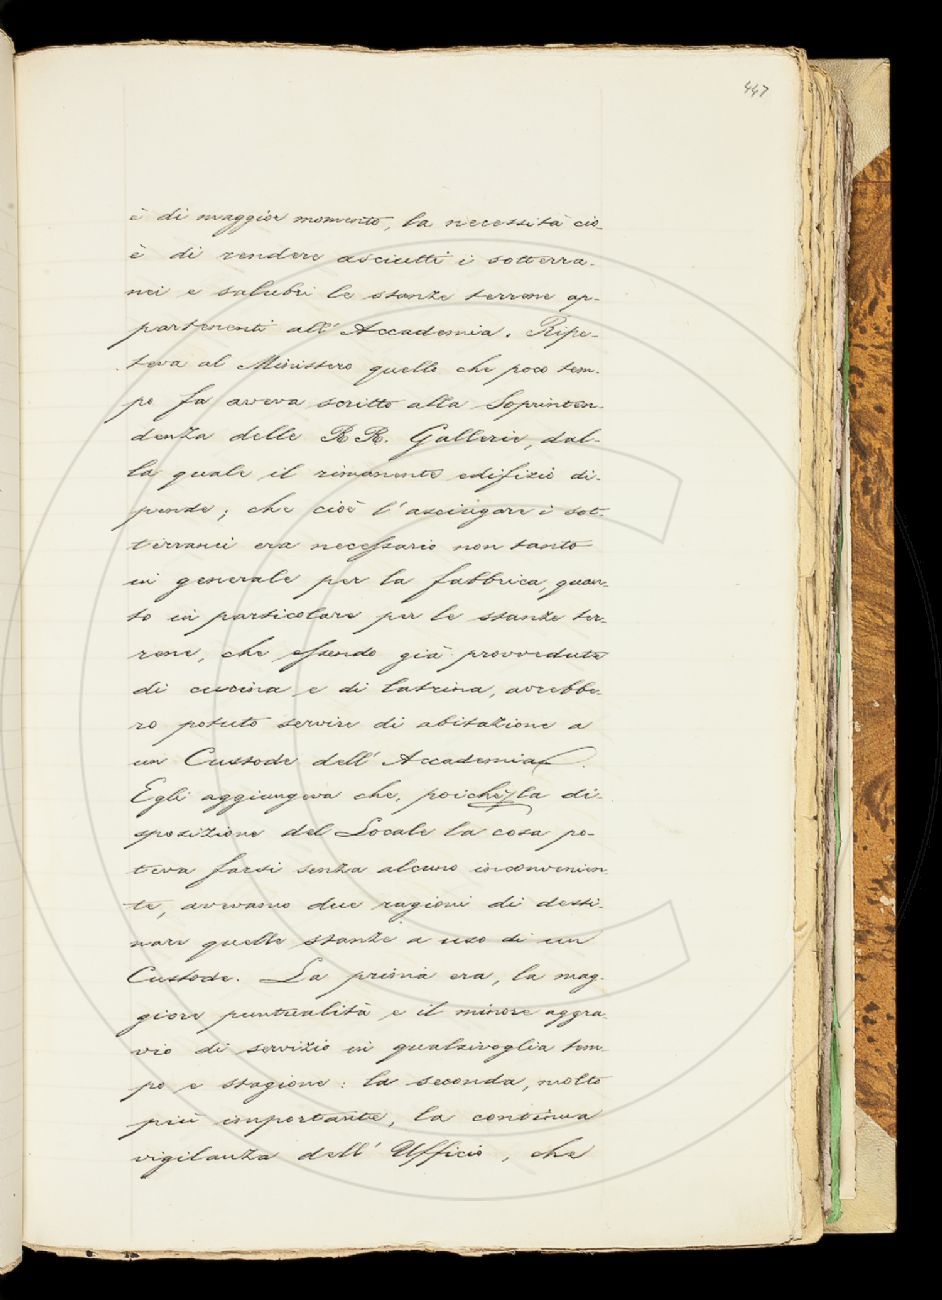 447
è di maggior momento, la necessità cio
è di rendere asciutti i sotterra-
nei e salubri le stanze terrene ap-
partenenti all' Accademia. Ripe-
teva al Ministero quello che poco tem-
po fa aveva scritto alla Soprinten-
denza delle RR. Gallerie, dal-
la quale il rimanente edifizio di-
pende; che cioè l'asciugare i sot-
terranei era necessario non tanto
in generale per la fabbrica, quan-
to in particolare per le stanze ter-
rene, che essendo già provvedute
di cucina e di latrina, avrebbe-
ro potuto servire di abitazione a
un Custode dell' Accademia.
Egli aggiungeva che, poichè la di-
sposizione del Locale la cosa po-
teva farsi senza alcuno inconvenien
te, avevano due ragioni di desti-
nare quelle stanze a uso di un
Custode. La prima era, la mag-
giore puntualità e il minore aggra-
vio di servizio in qualsivoglia tem-
po e stagione: la seconda, molto
più importante, la continua
vigilanza dell' Ufficio, che